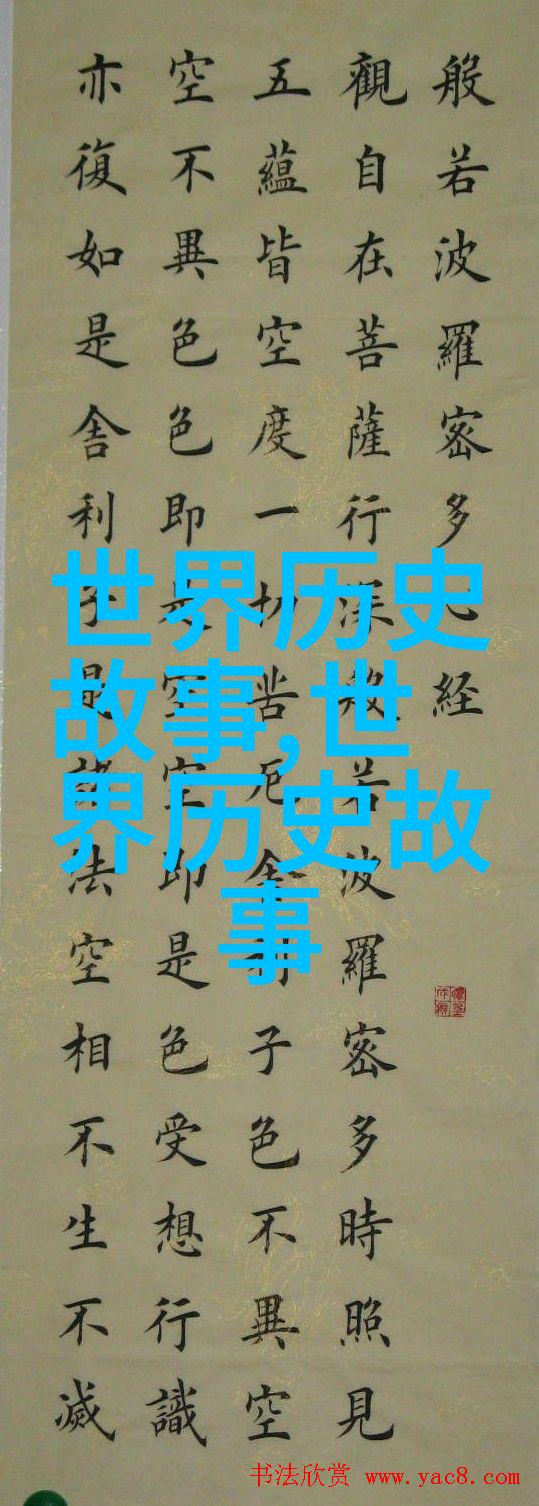 般若波羅密多心経
觀自在菩薩行深般若波羅密多時照見
五蘊皆空度一切苦厄舍利子色不異空
空不異色色即是空空即是色受想行識
亦復如是舍利子是諸法空相不生不滅
世界历史
故事,世
界历史故
事
书法欣赏 www.yac8.com